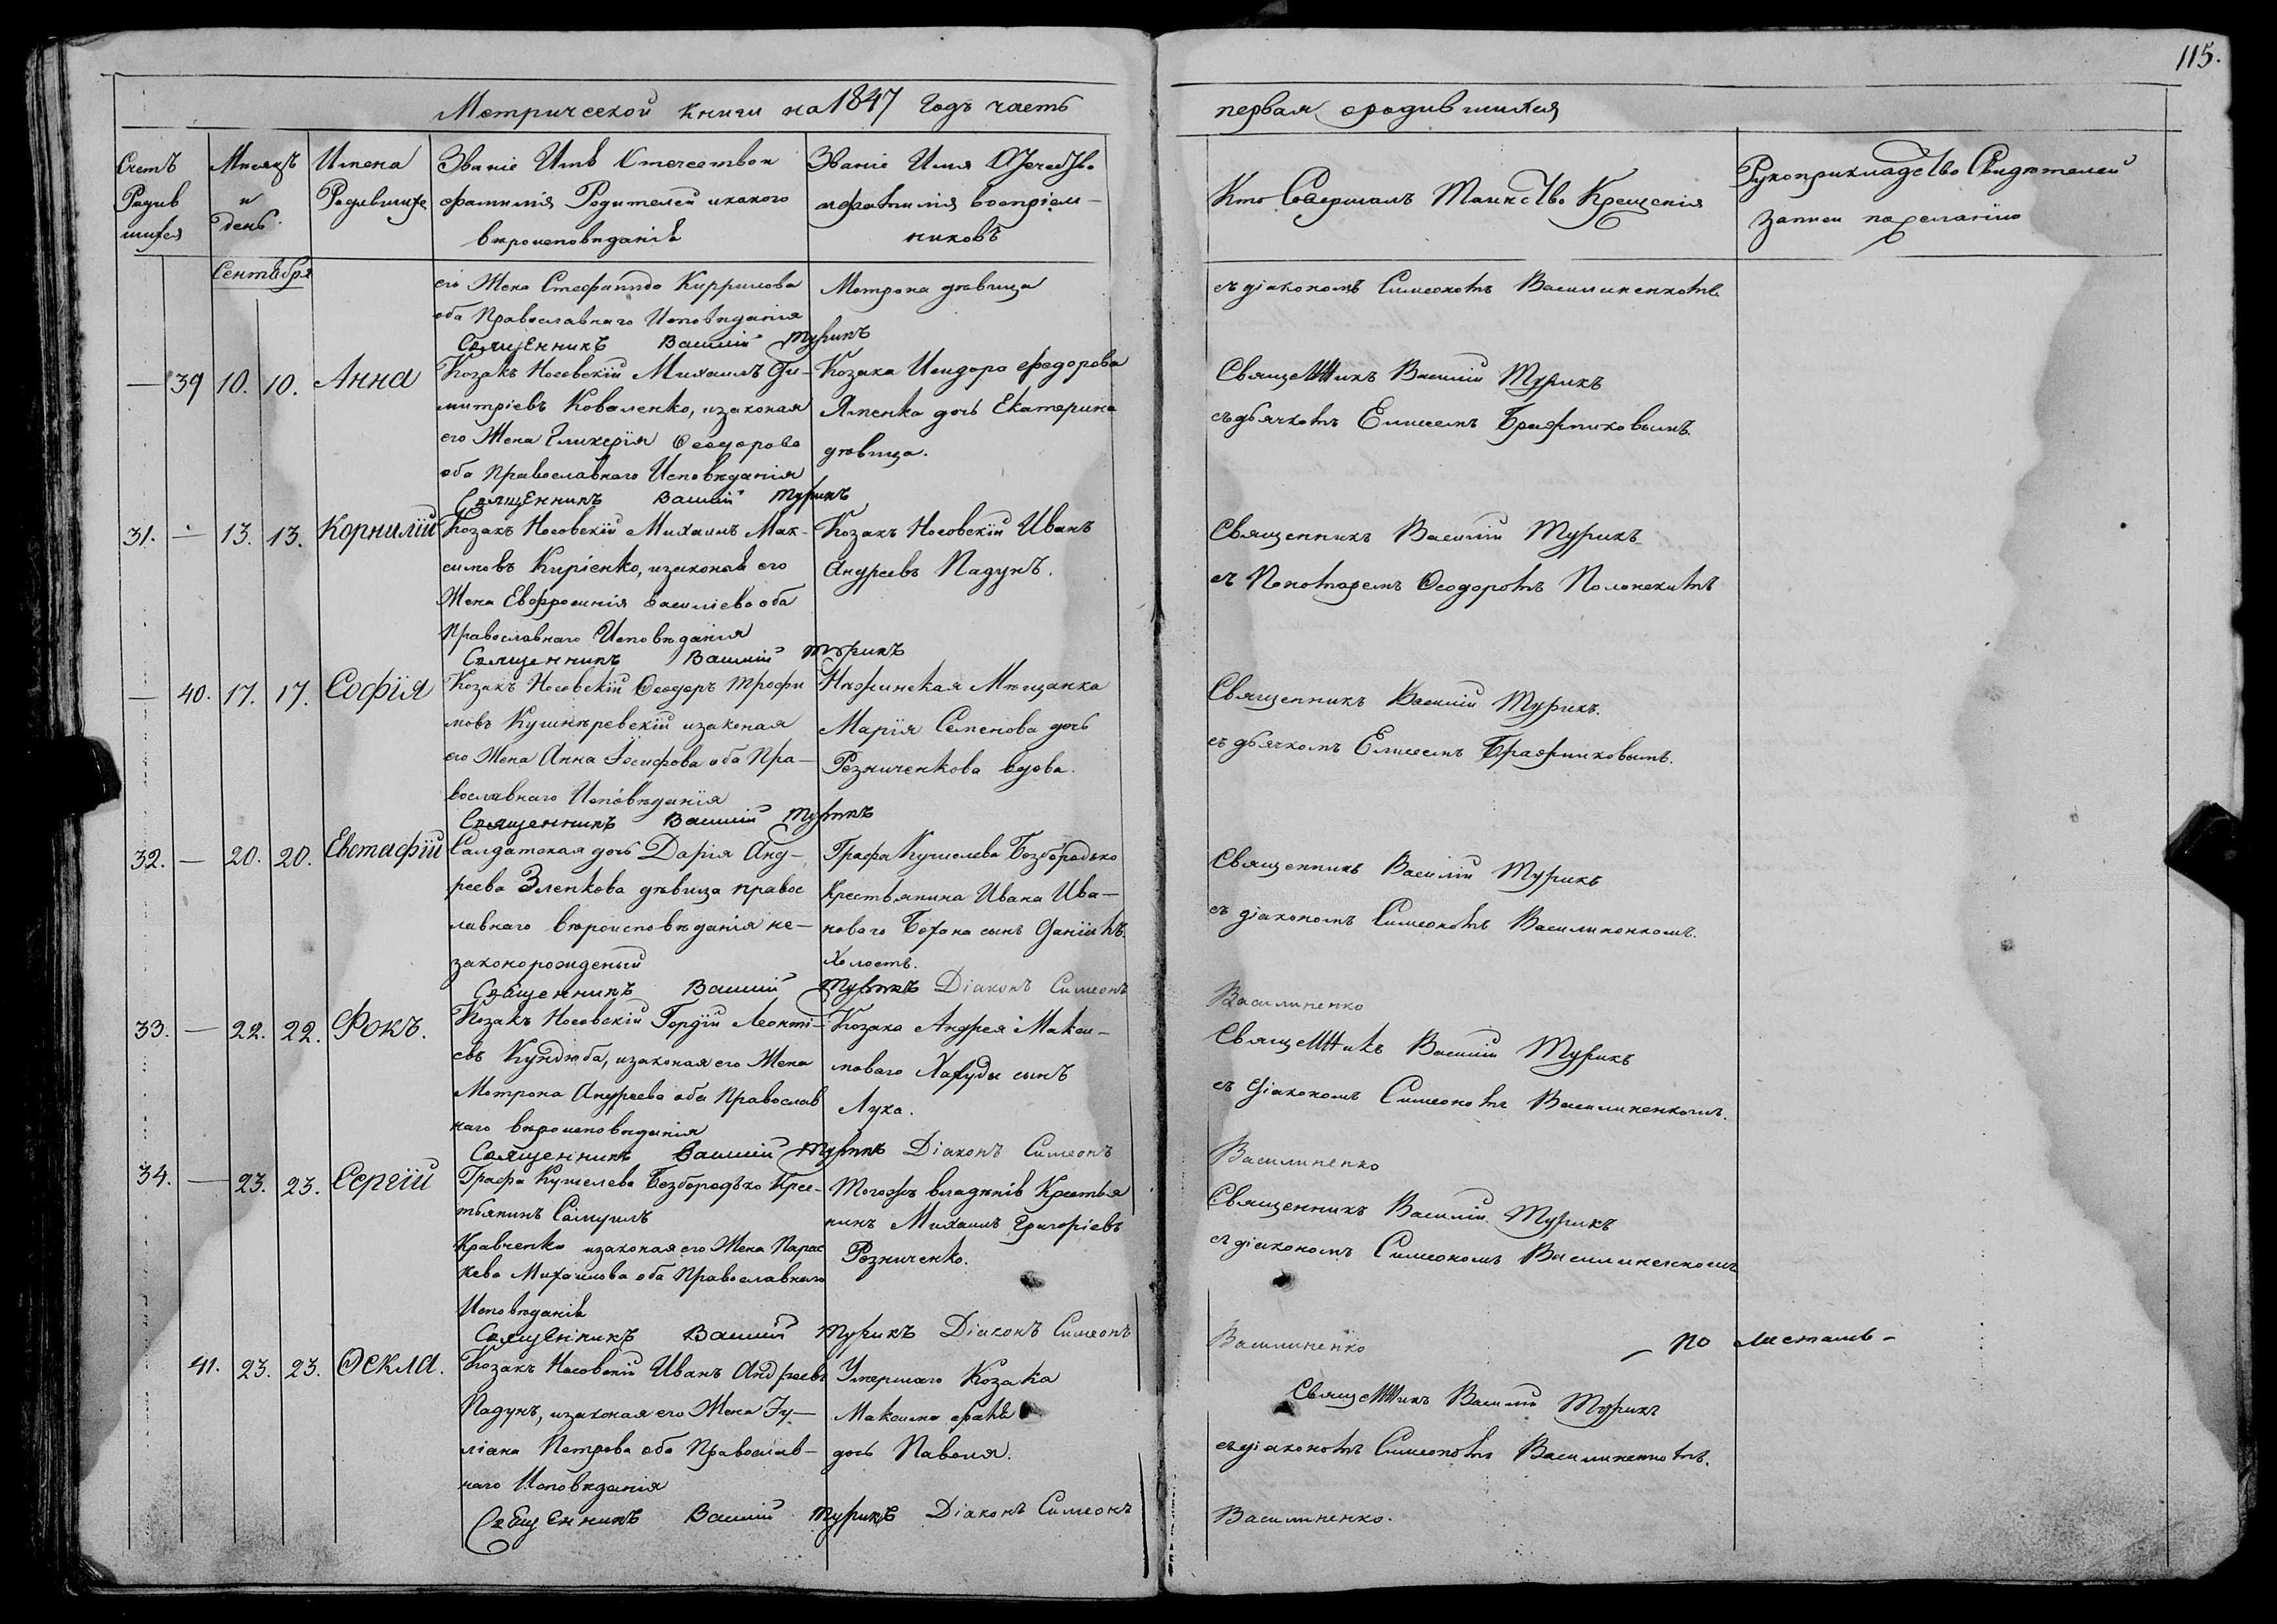 115.
Метрической книги на 1847 годъ часть первая о родившихся
Счетъ Родившихся
Мѣсяцъ и день
Имена Родившихся
Званіе Имя Отечество и фамилія Родителей и какого вѣроисповѣданія
Званіе Имя Отечество и фамилія воспріемниковъ
Кто Совершалъ Таинство Крещенія
Рукоприкладство Свидѣтелей записи по желанію
Сентября
его Жена Стефанида Киррилова
оба Православнаго Исповѣданія
Священникъ Василій Турикъ
Мотрона дѣвица
съ діакономъ Симеономъ Василиненкомъ
— 39 10. 10. Анна
Козакъ Носовскій Михаилъ Ди-
митріевъ Коваленко, изаконая
его Жена Гликерія Ѳеодорова
оба Православнаго Исповѣданія
Священникъ Василій Турикъ
Козака Исидора Федорова
Ялпенка дочь Екатерина
дѣвица.
Священникъ Василій Турикъ
съ дьячкомъ Елисеемъ Бражниковымъ
31. — 13. 13. Корнилій
Козакъ Носовскій Михаилъ Мак-
симовъ Кирієнко, изаконая его
Жена Евфросинія Василіева оба
Православнаго Исповѣданія
Священникъ Василій Турикъ
Козакъ Носовскій Иванъ
Андреевъ Падунъ.
Священникъ Василій Турикъ
съ Понотаремъ Ѳеодоромъ Полонскимъ
— 40. 17. 17. Софія
Козакъ Носовскій Ѳеодоръ Трофи
мовъ Кушнѣревскій изаконая
его Жена Анна Іосифова оба Пра-
вославнаго Исповѣданія
Священникъ Василій Турикъ
Нѣжинская Мѣщанка
Марія Семенова дочь
Резниченкова вдова.
Священникъ Василій Турикъ.
съ дьячкомъ Елисеемъ Бражниковымъ.
32. — 20. 20. Евстафій
Салдатская дочь Дарія Анд-
реева Зленкова дѣвица правос
лавнаго вѣроисповѣданія не-
законорожденый
Священникъ Василій Турикъ Діаконъ Симеонъ Василиненко
Графа Кушелева Безбородько
Крестьянина Ивана Ива-
новаго Бохана сынъ Даніилъ.
Холостъ.
Священникъ Василій Турикъ
съ діакономъ Симеономъ Василиненкомъ.
33. — 22. 22. Фокъ.
Козакъ Носовскій Гордій Леонті-
евъ Кундюба, изаконая его Жена
Мотрона Андреева оба Православ
наго вѣроисповѣданія
Священникъ Василій Турикъ Діаконъ Симеонъ Василиненко
Козака Андрея Макси-
моваго Хахуды сынъ
Лука.
Священникъ Василій Турикъ
съ діакономъ Симеономъ Василиненкомъ.
34. — 23. 23. Сергій
Графа Кушелева Безбородько Крес-
тьянинъ Самуилъ
Кравченко изаконая его Жена Парас
кева Михаилова оба Православнаго
Исповѣданія
Священникъ Василій Турикъ Діаконъ Симеонъ Василиненко
Тогожъ владѣнія Крестья
нинъ Михаилъ Григоріевъ
Резниченко.
Священникъ Василій Турикъ
съ діакономъ Симеономъ Василиненкомъ
— по листамъ —
41. 23. 23. Ѳекла.
Козакъ Носовскій Иванъ Андреевъ
Падунъ, изаконая его Жена Іу-
ліана Петрова оба Православ-
наго Исповѣданія
Священникъ Василій Турикъ Діаконъ Симеонъ Василиненко.
Умершаго Козака
Максима
дочь Паволя.
Священникъ Василій Турикъ
съ діакономъ Симеономъ Василиненкомъ.